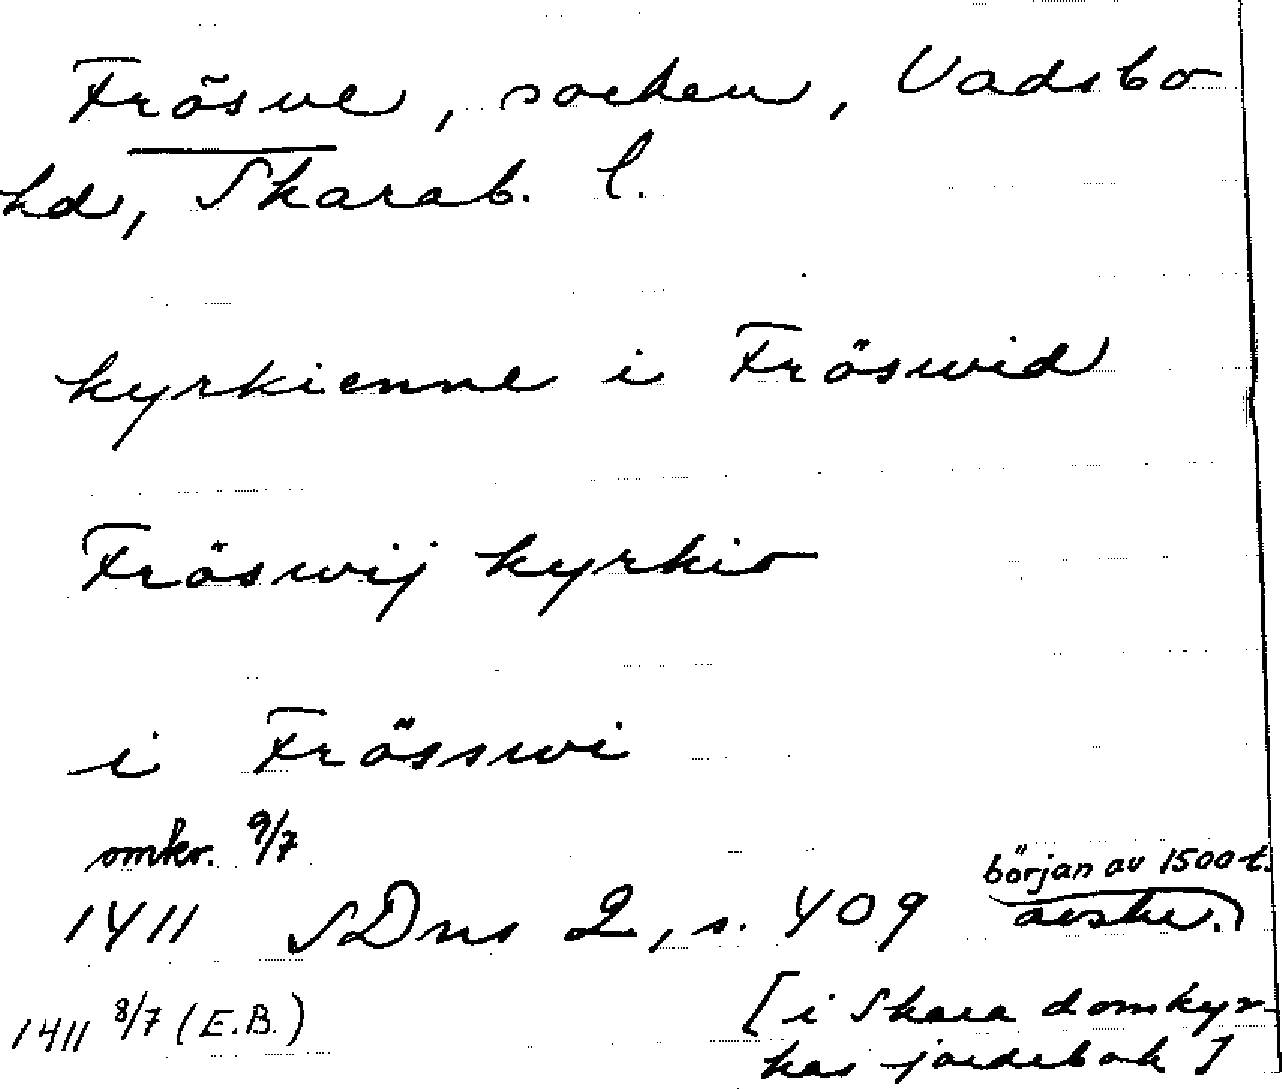 Frösve, socken, Vadsbo
hd, Skarab. l.
kyrkienne i Fröswid
Fröswij kyrkio
i Frösswi
omkr. 9/7
1411 SDns 2, s. 409 början av 1500-t. avskr.
1411 8/7 (E.B.)
[i Skara domkyr-
kas jordebok]